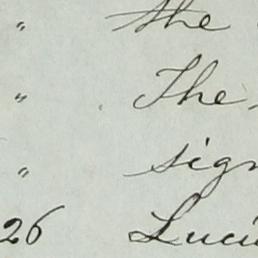 " the
" The
" sign
26 Luci